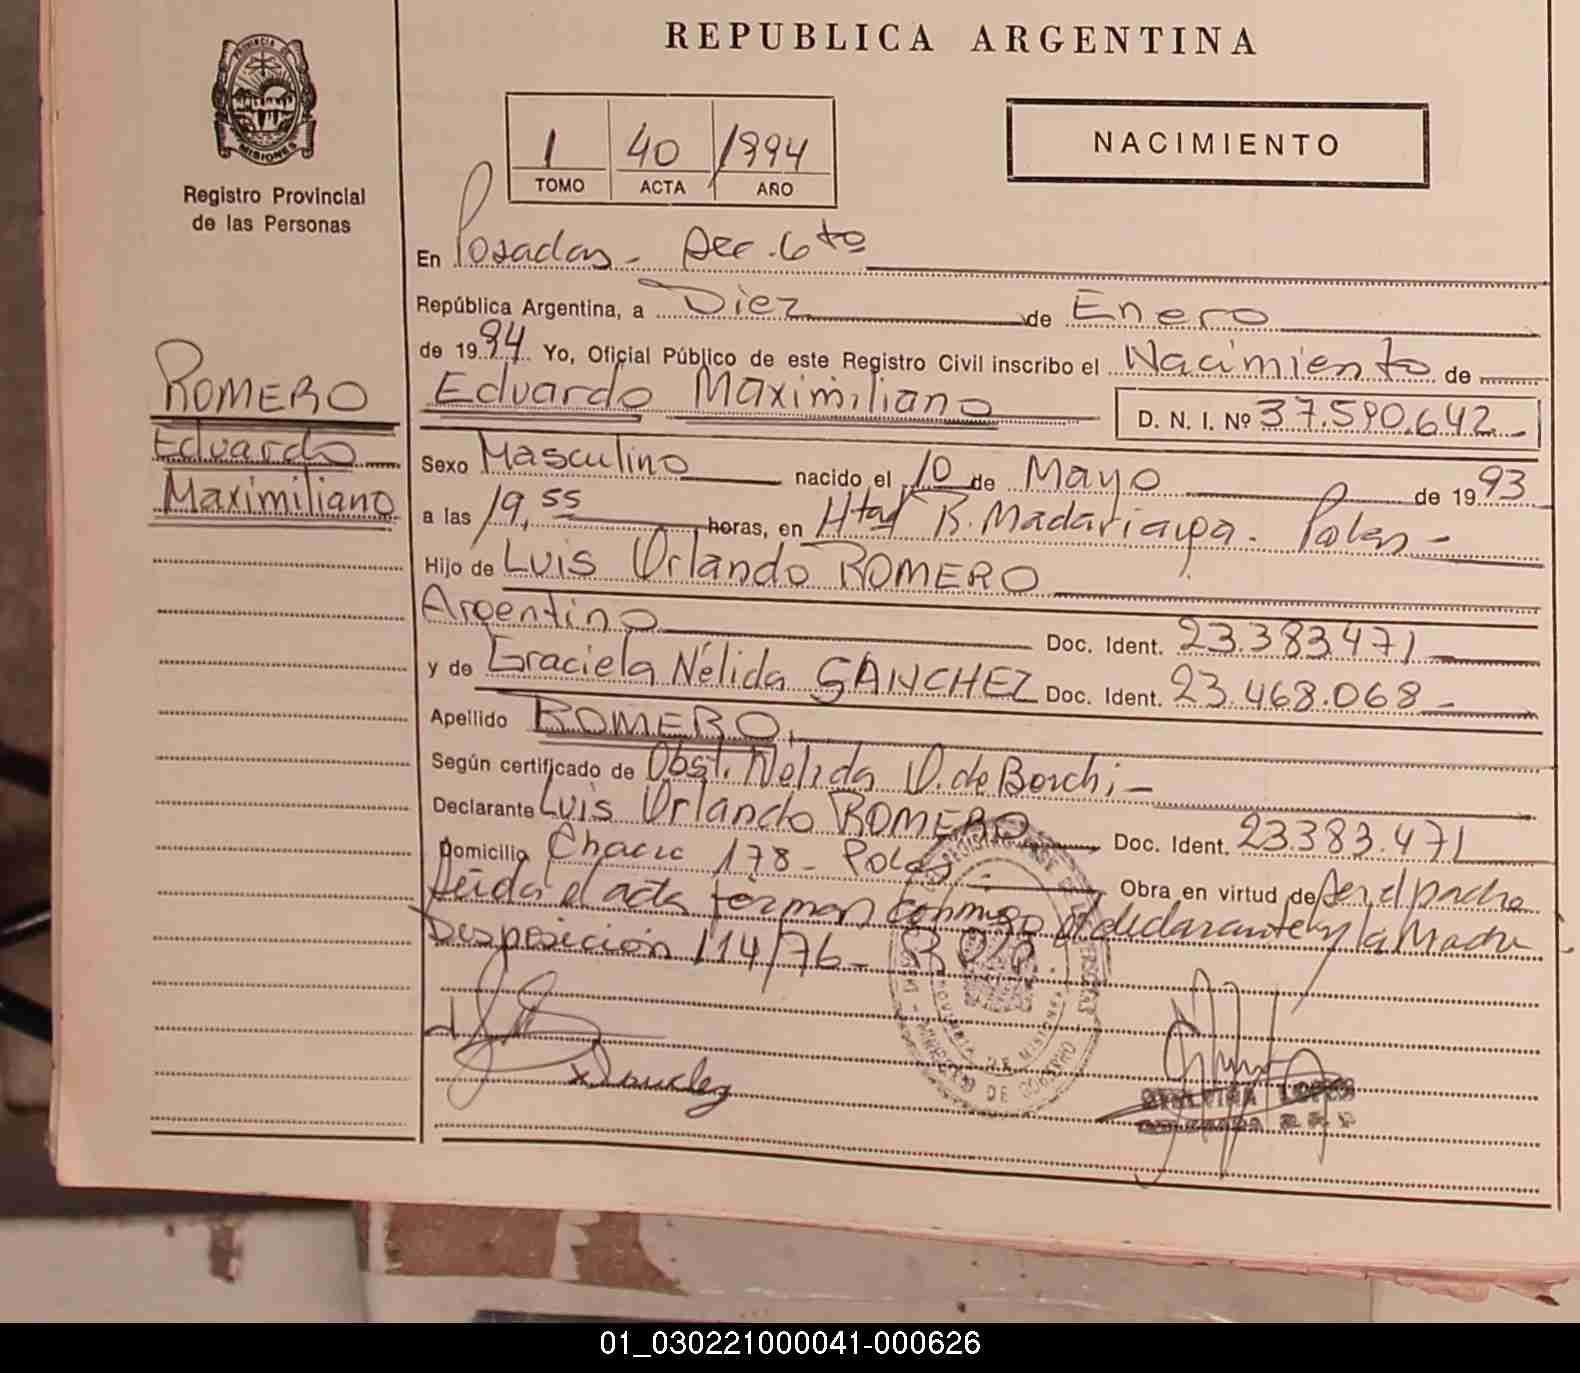 REPUBLICA ARGENTINA
PROVINCIA DE
MISIONES
Registro Provincial
de las Personas
1 40 1994
TOMO ACTA AÑO
NACIMIENTO
En Posadas - Sec. 6to
República Argentina, a Diez de Enero
de 1994 Yo, Oficial Público de este Registro Civil inscribo el Nacimiento de
Eduardo Maximiliano D. N. I. Nº 37.590.642 -
Sexo Masculino nacido el 10 de Mayo de 1993
a las 19,55 horas, en Htal R. Madariaga. Pdas -
Hijo de Luis Orlando ROMERO
Argentino Doc. Ident. 23.383.471
y de Graciela Nélida SANCHEZ Doc. Ident. 23.468.068 -
Apellido ROMERO.
Según certificado de Obst. Nélida D. de Borchi -
Declarante Luis Orlando ROMERO Doc. Ident. 23.383.471
Domicilio 178 - Pdas Obra en virtud de ser el padre
Leida el acta firman conmigo el declarante y la Madre
Disposición 114/76 -
ROMERO
Eduardo
Maximiliano
PROVINCIA DE MISIONES
LOPEZ
01_030221000041-000626